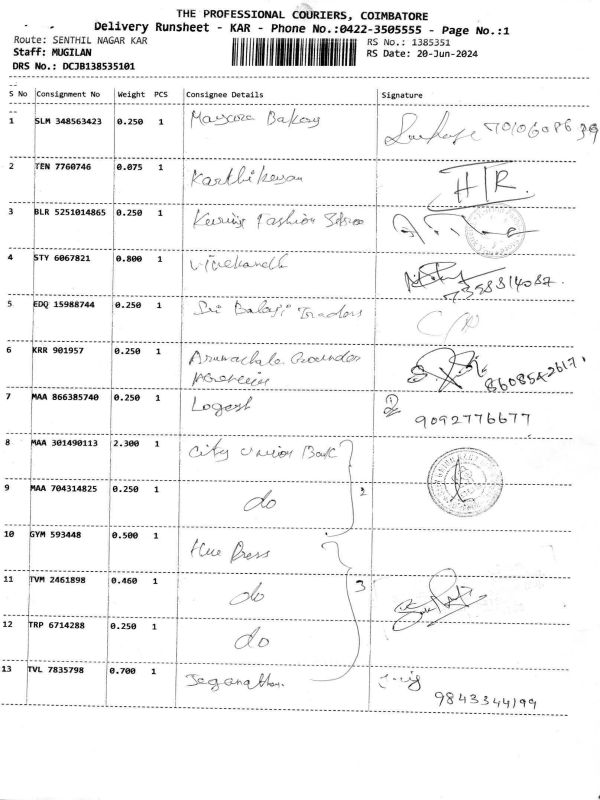 THE PROFESSIONAL COURIERS, COIMBATORE
Delivery Runsheet - KAR - Phone No.:0422-3505555 - Page No.:1
Route: SENTHIL NAGAR KAR RS No.: 1385351
Staff: MUGILAN RS Date: 20-Jun-2024
DRS No.: DCJB138535101
S No Consignment No Weight PCS Consignee Details Signature
1 SLM 348563423 0.250 1 Bakery
2 TEN 7760746 0.075 1 Karthikeyan
3 BLR 5251014865 0.250 1 Fashion
4 STY 6067821 0.800 1 Vivekanandh
7358314087.
5 EDQ 15988744 0.250 1 Sri Balaji Traders
6 KRR 901957 0.250 1 Arunachala Gounder
8608542617.
7 MAA 866385740 0.250 1 Logesh
9092776677
8 MAA 301490113 2.300 1 City Union Bank
9 MAA 704314825 0.250 1 do 2
10 GYM 593448 0.500 1 Hue Press
11 TVM 2461898 0.460 1 do 3
12 TRP 6714288 0.250 1 do
13 TVL 7835798 0.700 1 Jeganathan.
9843344199